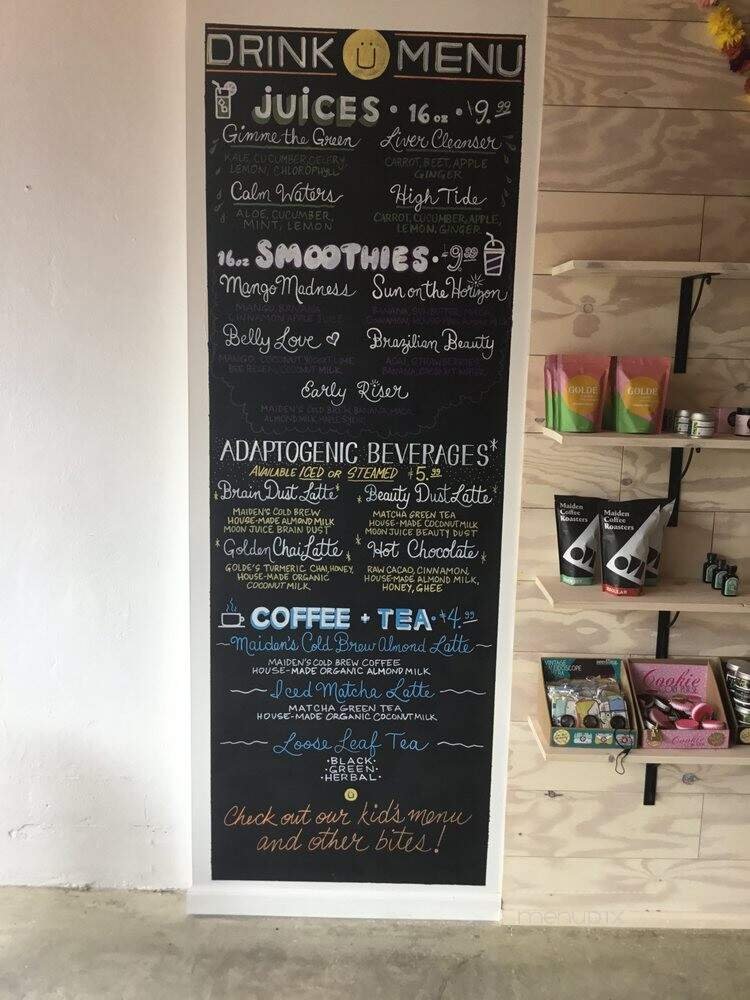 DRINK Ü MENU
JUICES • 16 oz • $9.99
Gimme the Green
KALE, CUCUMBER, CELERY,
LEMON, CHLOROPHYLL
Liver Cleanser
CARROT, BEET, APPLE
GINGER
Calm Waters
ALOE, CUCUMBER,
MINT, LEMON
High Tide
CARROT, CUCUMBER, APPLE,
LEMON, GINGER
16oz SMOOTHIES • 9.99
Mango Madness
MANGO, BANANA,
CINNAMON, APPLE JUICE
Sun on the Horizon
BANANA, SUNBUTTER, MACA,
CINNAMON,
Belly Love
MANGO, COCONUT YOGURT, LIME
BEE POLLEN, COCONUT MILK
Brazilian Beauty
ACAI, STRAWBERRIES,
BANANA, COCONUT WATER
Early Riser
MAIDEN'S COLD BREW, BANANA, MACA,
ALMOND MILK, MAPLE SYRUP
ADAPTOGENIC BEVERAGES*
AVAILABLE ICED OR STEAMED $5.99
Brain Dust Latte
MAIDEN'S COLD BREW
HOUSE-MADE ALMOND MILK
MOON JUICE BRAIN DUST
Beauty Dust Latte
MATCHA GREEN TEA
HOUSE-MADE COCONUT MILK
MOON JUICE BEAUTY DUST
Golden Chai Latte
GOLDE'S TURMERIC CHAI, HONEY,
HOUSE-MADE ORGANIC
COCONUT MILK
Hot Chocolate
RAW CACAO, CINNAMON,
HOUSE-MADE ALMOND MILK,
HONEY, GHEE
COFFEE + TEA • $4.99
Maiden's Cold Brew Almond Latte
MAIDEN'S COLD BREW COFFEE
HOUSE-MADE ORGANIC ALMOND MILK
Iced Matcha Latte
MATCHA GREEN TEA
HOUSE-MADE ORGANIC COCONUT MILK
Loose Leaf Tea
•BLACK•
•GREEN•
•HERBAL•
ü
Check out our kid's menu
and other bites!
GOLDE
GOLDE
Maiden
Coffee
Roasters
Maiden
Coffee
Roasters
REGULAR
VINTAGE
Cookie
Cookie
menupix